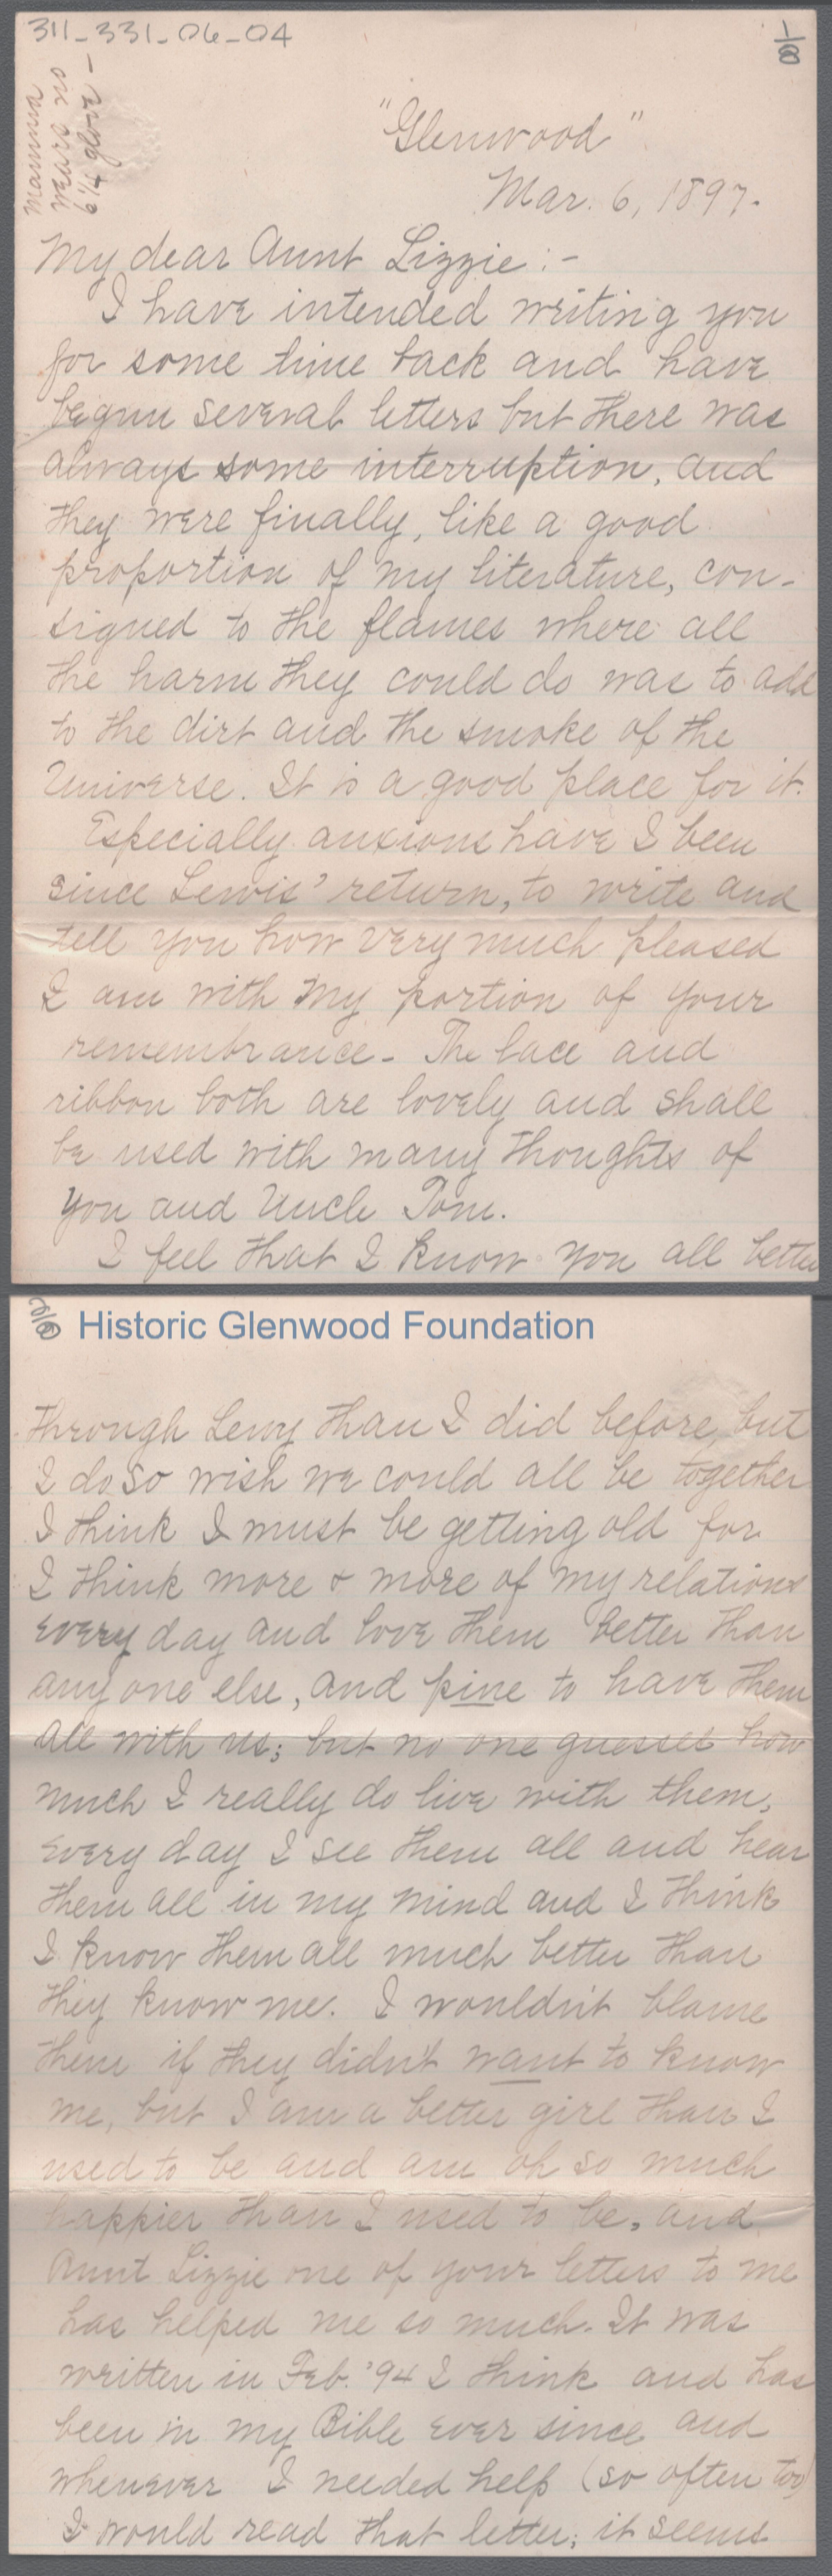 311-331-06-04
1/8
Mamma
wears no
6 1/4 glove -
"Glenwood"
Mar. 6, 1897.
My dear Aunt Lizzie:-
I have intended writing you
for some time back and have
begun several letters but there was
always some interruption, and
they were finally, like a good
proportion of my literature, con-
signed to the flames where all
the harm they could do was to add
to the dirt and the smoke of the
Universe. It is a good place for it.
Especially anxious have I been
since Lewis' return, to write and
tell you how very much pleased
I am with my portion of your
remembrance - The lace and
ribbon both are lovely and shall
be used with many thoughts of
you and Uncle Tom.
I feel that I know you all better
Historic Glenwood Foundation
through Lewy than I did before, but
I do so wish we could all be together
I think I must be getting old for
I think more & more of my relations
every day and love them better than
any one else, and pine to have them
all with us; but no one guesses how
much I really do live with them,
every day I see them all and hear
them all in my mind and I think
I know them all much better than
they know me. I wouldn't blame
them if they didn't want to know
me, but I am a better girl than I
used to be and am oh so much
happier than I used to be, and
Aunt Lizzie one of your letters to me
has helped me so much. It was
written in Feb. '94 I think and has
been in my Bible ever since and
whenever I needed help (so often too)
I would read that letter; it seems